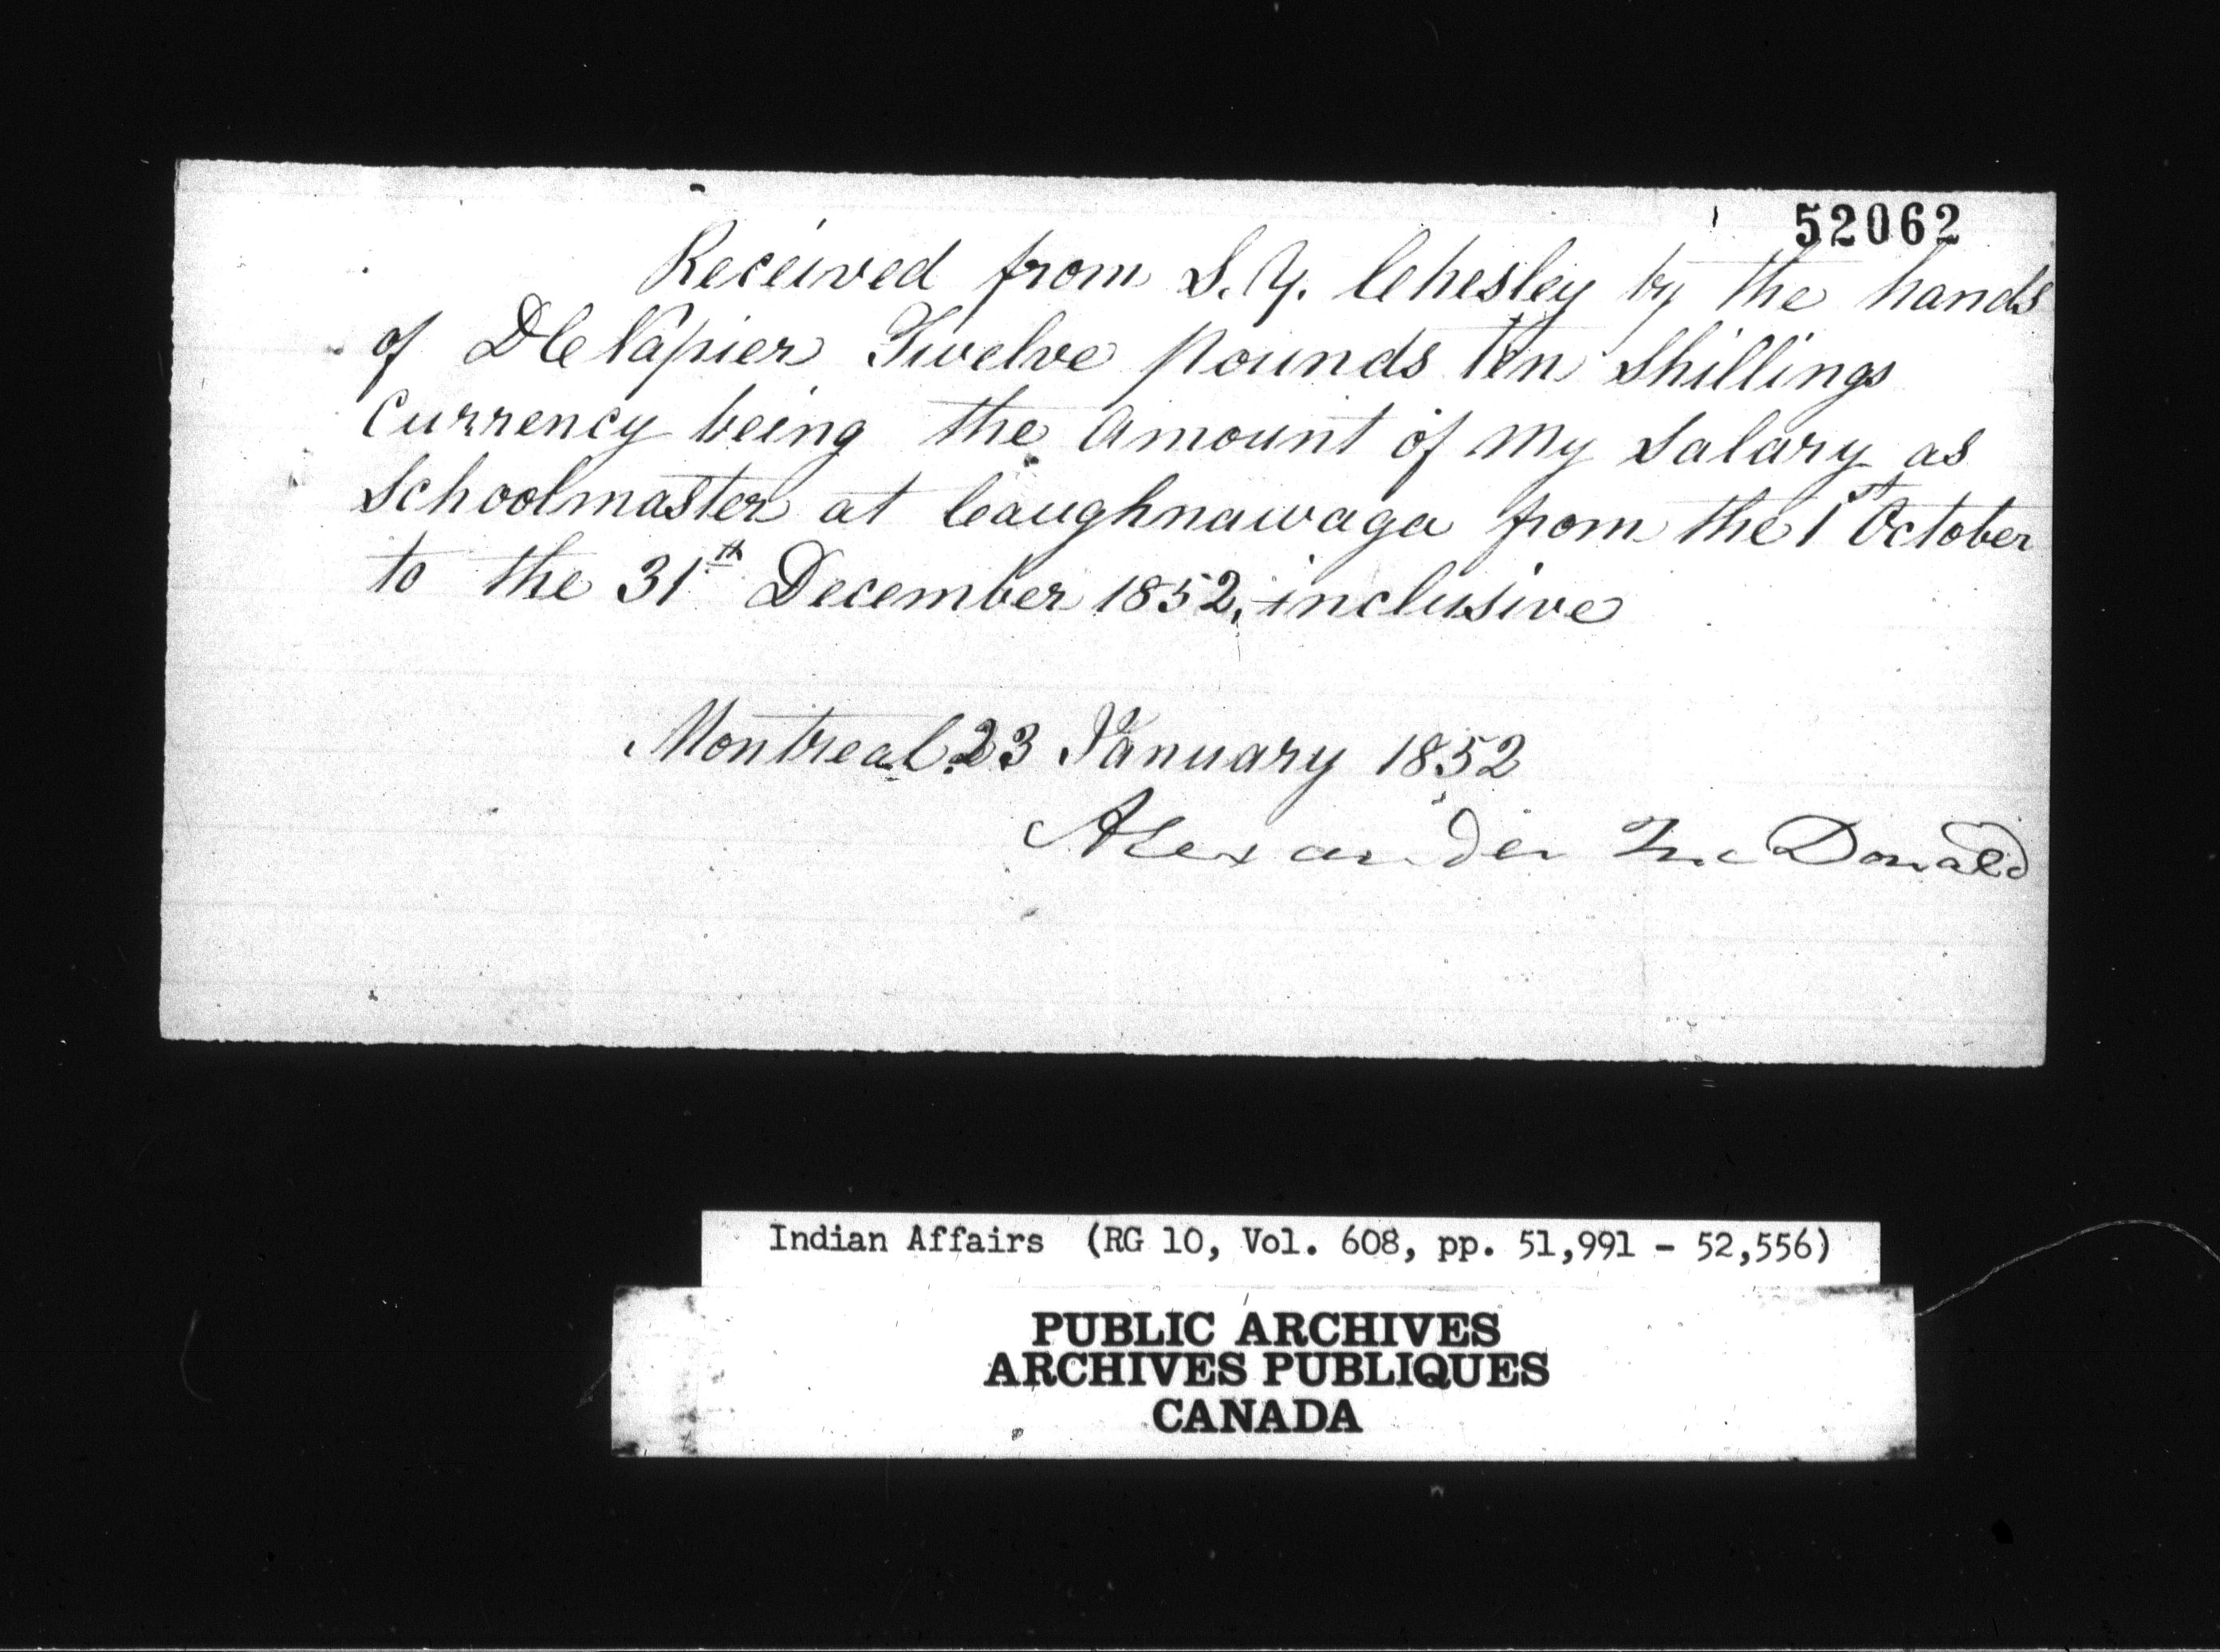 52062
Received from S. Y. Chesley by the hands
of D C Napier Twelve pounds ten Shillings
Currency being the Amount of My Salary as
Schoolmaster at Caughnawaga from the 1st October
to the 31th December 1852, inclusive
Montreal 23 January 1852
Alexander McDonald
Indian Affairs (RG 10, Vol. 608, pp. 51,991 - 52,556)
PUBLIC ARCHIVES
ARCHIVES PUBLIQUES
CANADA